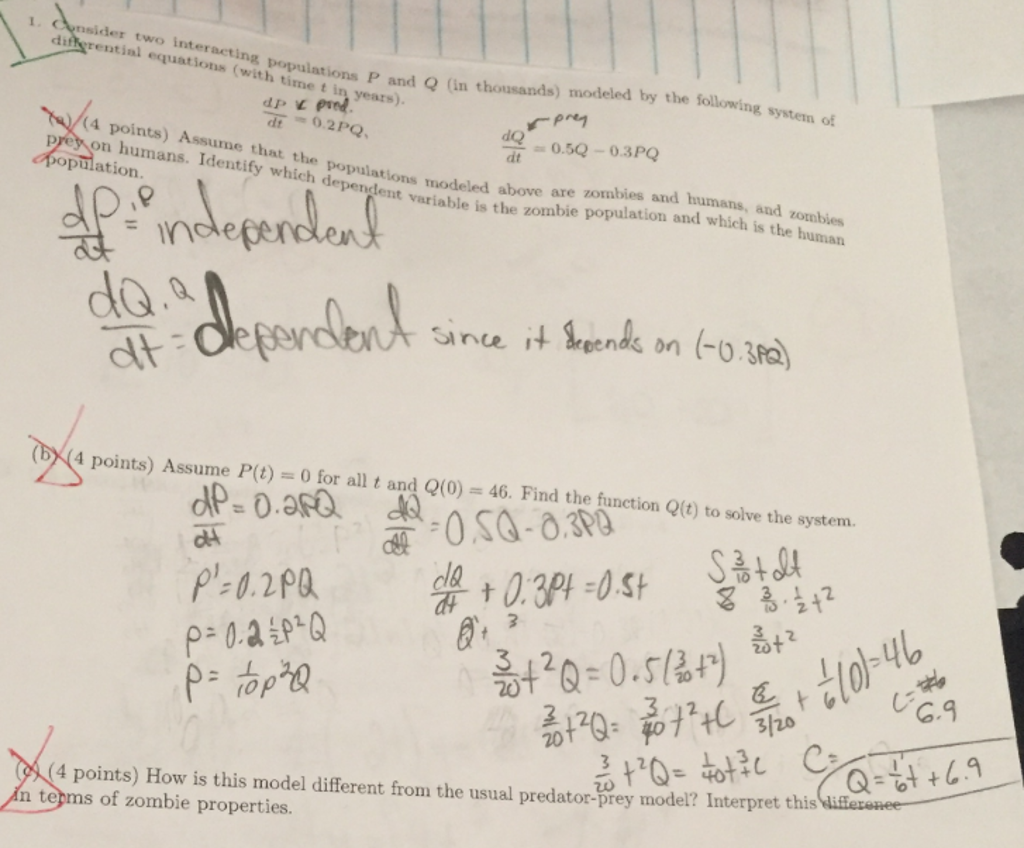 1. Consider two interacting populations P and Q (in thousands) modeled by the following system of
differential equations (with time t in years).
↙ pred.
dP/dt = 0.2PQ,
← prey
dQ/dt = 0.5Q − 0.3PQ
(a) (4 points) Assume that the populations modeled above are zombies and humans, and zombies
prey on humans. Identify which dependent variable is the zombie population and which is the human
population.
dP/dt = P independent
dQ/dt = Q dependent since it depends on (-0.3PQ)
(b) (4 points) Assume P(t) = 0 for all t and Q(0) = 46. Find the function Q(t) to solve the system.
dP/dt = 0.2PQ
dQ/dt = 0.5Q - 0.3PQ
P' = 0.2PQ
dQ/dt + 0.3Pt = 0.5t
∫ 3/10 t dt
3/10 · 1/2 t²
P = 0.2 1/2 P²Q
3/20 t²
P = 1/10 P²Q
3/20 t²Q = 0.5(3/20 t²)
3/20 t²Q = 3/40 t² + C
C/3/20 + 1/6(0) = 46
C = 6.9
3/20 t²Q = 1/40 t³ + C
C =
Q = 1/6 t + 6.9
(c) (4 points) How is this model different from the usual predator-prey model? Interpret this difference
in terms of zombie properties.